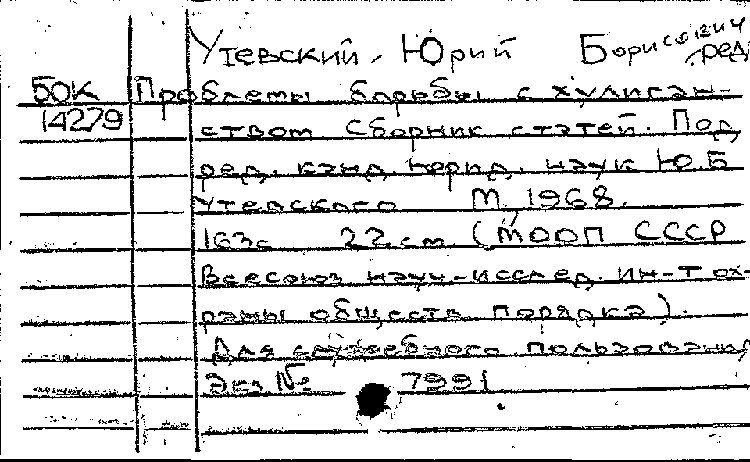 Утевский, Юрий Борисович
ред.
БОК Проблемы борьбы с хулиган-
14279 ством Сборник статей. Под
ред. канд. юрид. наук Ю.Б
Утевского М, 1968.
163с 22см (МООП СССР
Всесоюз науч-исслед. ин-т ох-
раны обществ. порядка).
Для служебного пользования
Экз № 7991